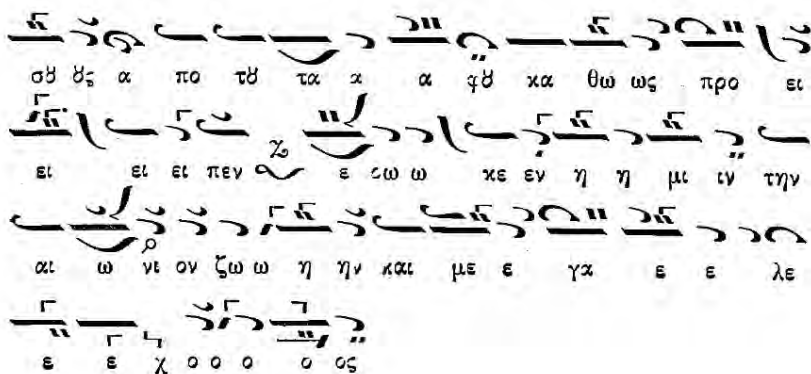 σȣ ȣς α πο τȣ τα α α φȣ κα θω ως προ ει
ει ει ει πεν ε δω ω κε εν η η μι ιν την
αι ω νι ον ζω ω η ην και με ε γα ε ε λε
ε ε χ ο ο ο ο ος